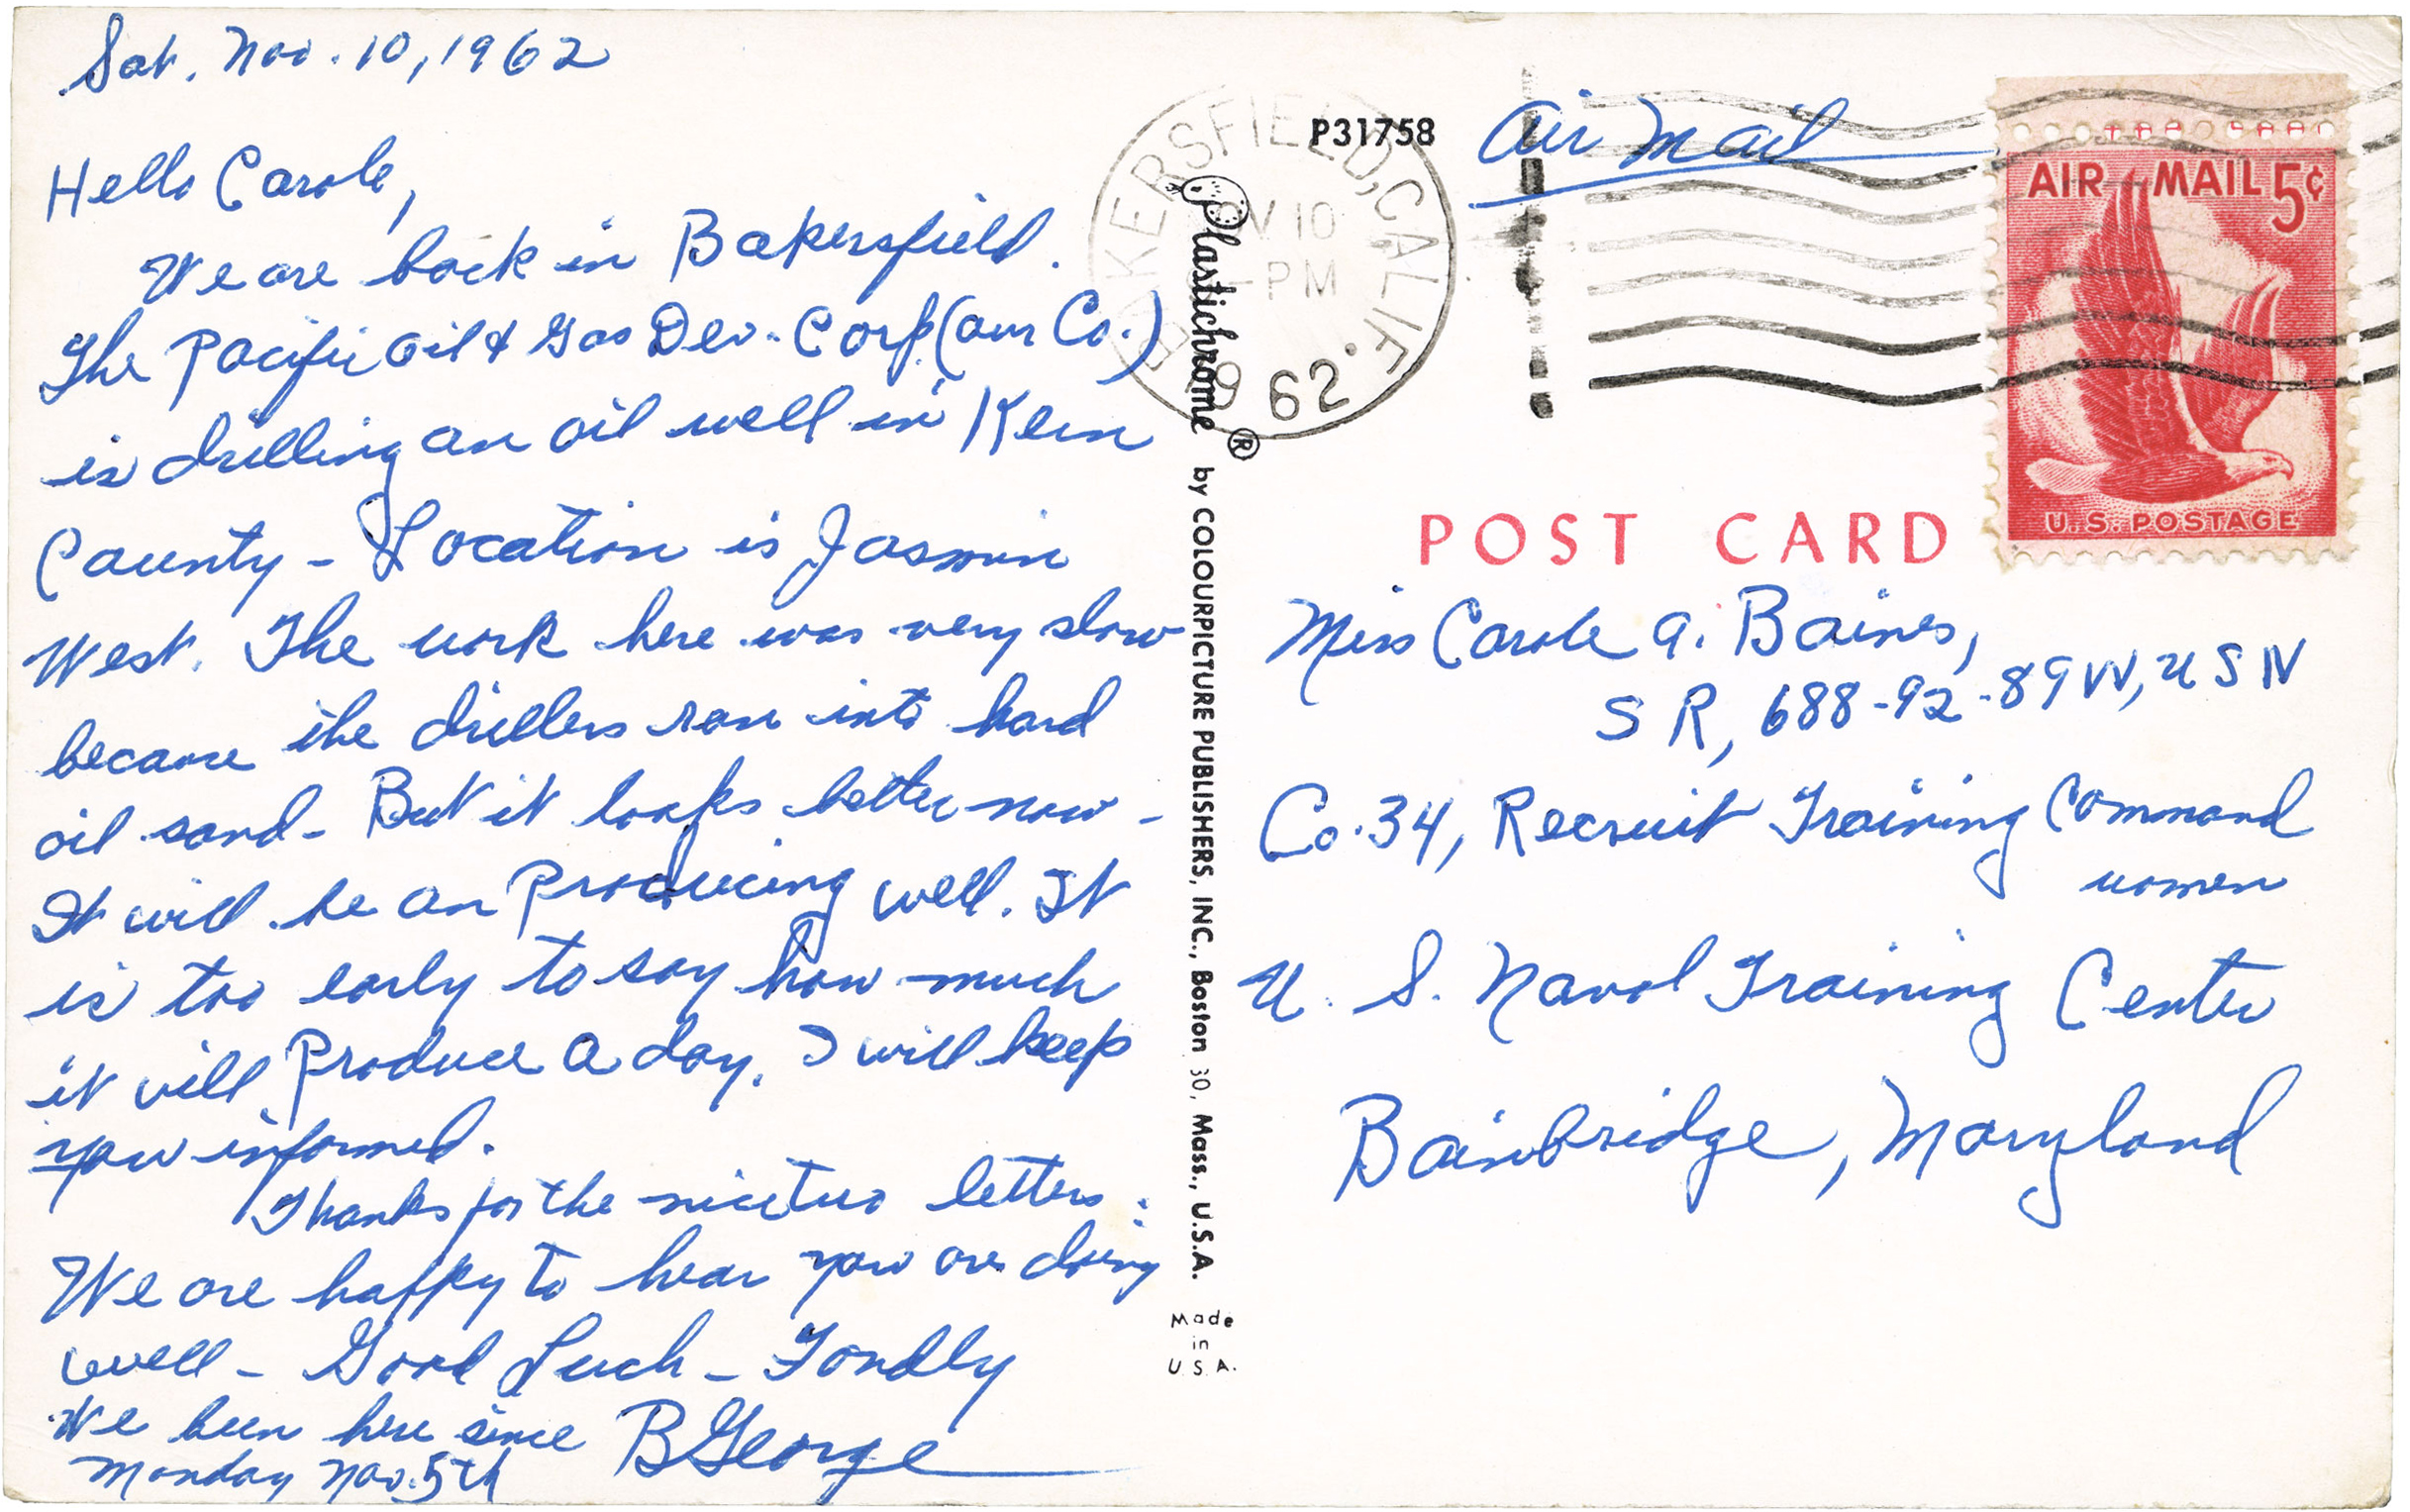 Sat. Nov. 10, 1962
Hello Carole,
We are back in Bakersfield.
The Pacific Oil & Gas Dev. Corp (our Co.)
is drilling an oil well in Kern
County - Location is Jasmin
West. The work here was very slow
because the drillers ran into hard
oil sand - But it looks better now -
It will be an Producing well. It
is too early to say how much
it will Produce a day. I will keep
you informed.
Thanks for the nice two letters.
We are happy to hear you are doing
well - Good Luck - Fondly
We been here since
Monday Nov. 5th
B George
Plastichrome ® by COLOURPICTURE PUBLISHERS, INC., Boston 30, Mass., U.S.A.
Made
in
U.S.A.
P31758
BAKERSFIELD, CALIF.
NOV 10
PM
1962
Air Mail
AIR MAIL 5¢
U.S. POSTAGE
POST CARD
Miss Carole A. Baines,
SR, 688-92-89W, USN
Co. 34, Recruit Training Command
women
U. S. Naval Training Center
Bainbridge, Maryland